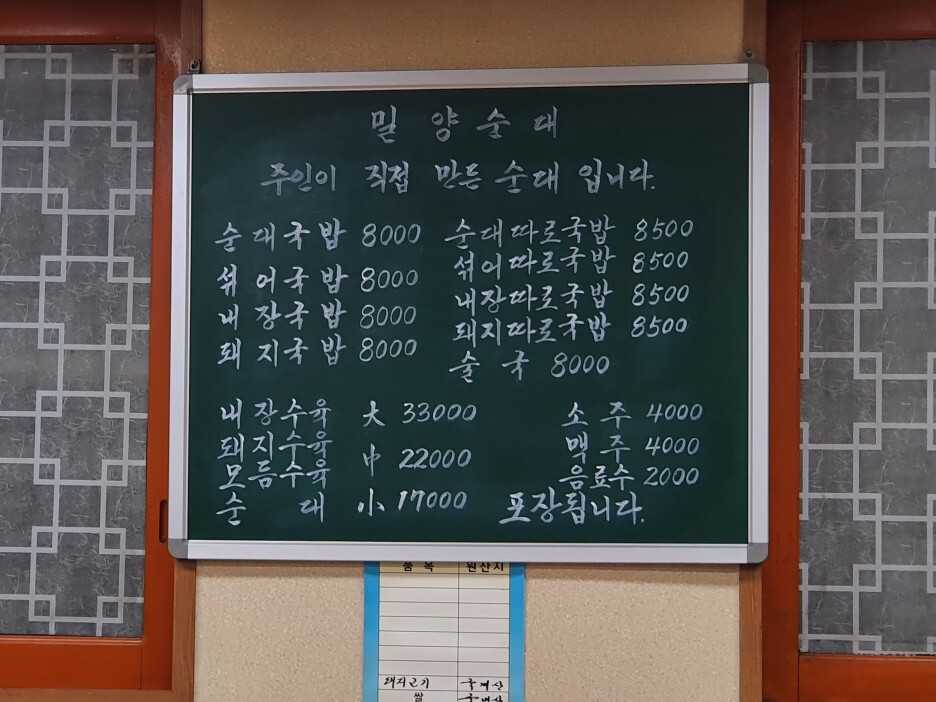 밀양순대
주인이 직접 만든 순대 입니다.
순대국밥 8000 순대따로국밥 8500
섞어국밥 8000 섞어따로국밥 8500
내장국밥 8000 내장따로국밥 8500
돼지국밥 8000 돼지따로국밥 8500
술국 8000
내장수육 大 33000 소주 4000
돼지수육 맥주 4000
모듬수육 中 22000 음료수 2000
순대 小 17000 포장됩니다.
품목 원산지
돼지고기 국내산
쌀 국내산